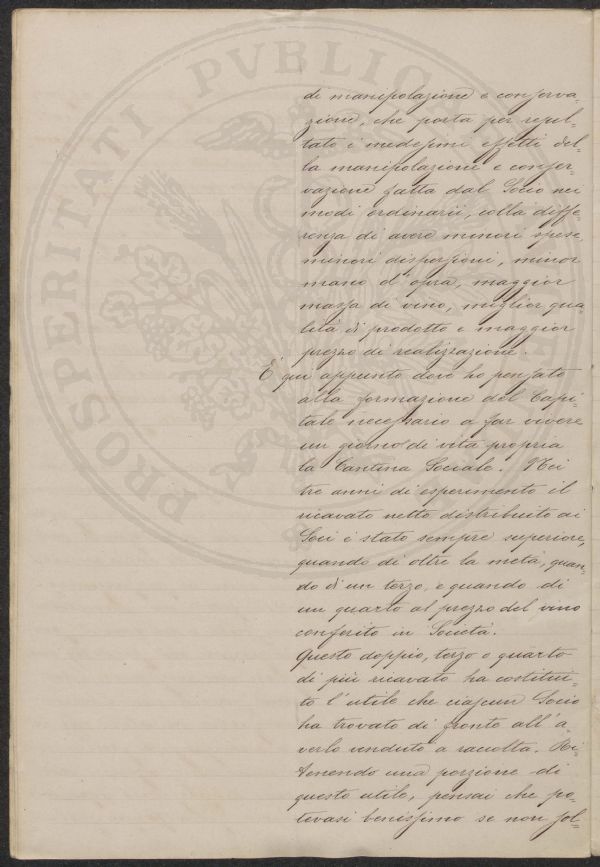 di manipolazione e conserva-
zione, che porta per resul-
tato i medesimi effetti del-
la manipolazione e conser-
vazione fatta dal Socio nei
modi ordinarii, colla diffe-
renza di avere minori spese,
minori dispersioni, minor
mano d'opra, maggior
massa di vino, miglior qua-
lità di prodotto e maggior
prezzo di realizzazione.
È qui appunto dove ho pensato
alla formazione del Capi-
tale necessario a far vivere
un giorno di vita propria
la Cantina Sociale. Nei
tre anni di esperimento il
ricavato netto distribuito ai
Soci è stato sempre superiore,
quando di oltre la metà, quan-
do di un terzo, e quando di
un quarto al prezzo del vino
conferito in Società.
Questo doppio, terzo o quarto
di più ricavato ha costitui-
to l'utile che ciascun Socio
ha trovato di fronte all'a-
verlo venduto a raccolta. Ri-
tenendo una porzione di
questo utile, pensai che po-
tevasi benissimo se non sol-
PROSPERITATI PVBLIC